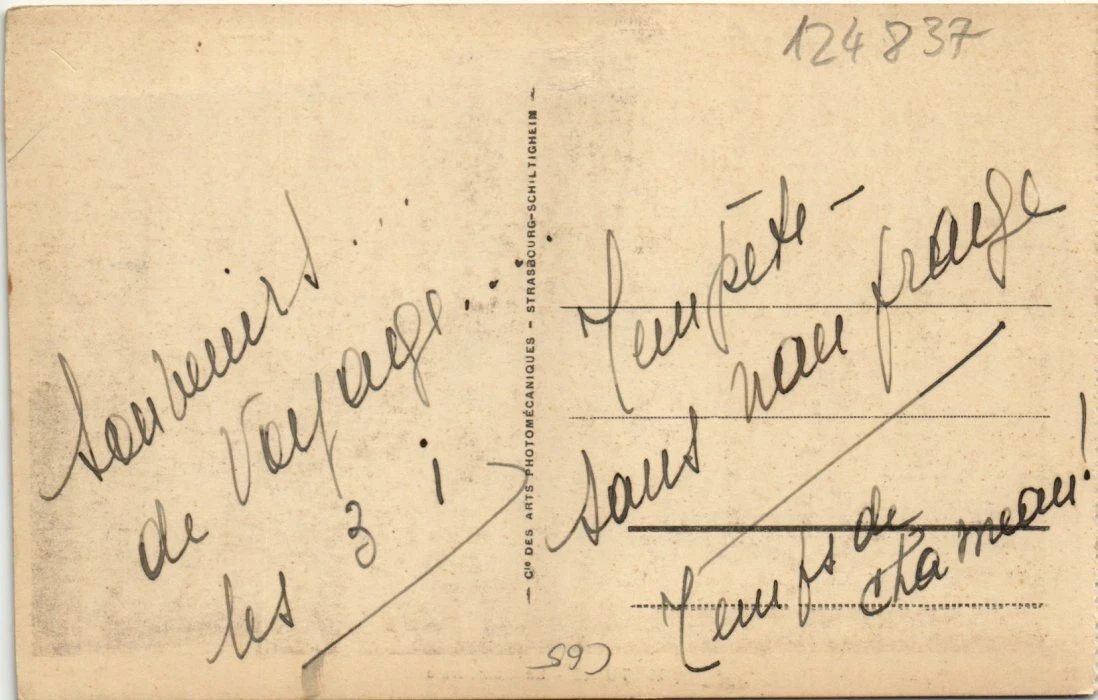 124 837
Souvenirs
de Voyage...
les 3 i
Cie DES ARTS PHOTOMÉCANIQUES - STRASBOURG-SCHILTIGHEIM
Tempête -
sans naufrage
Temps de
chameau!
C65